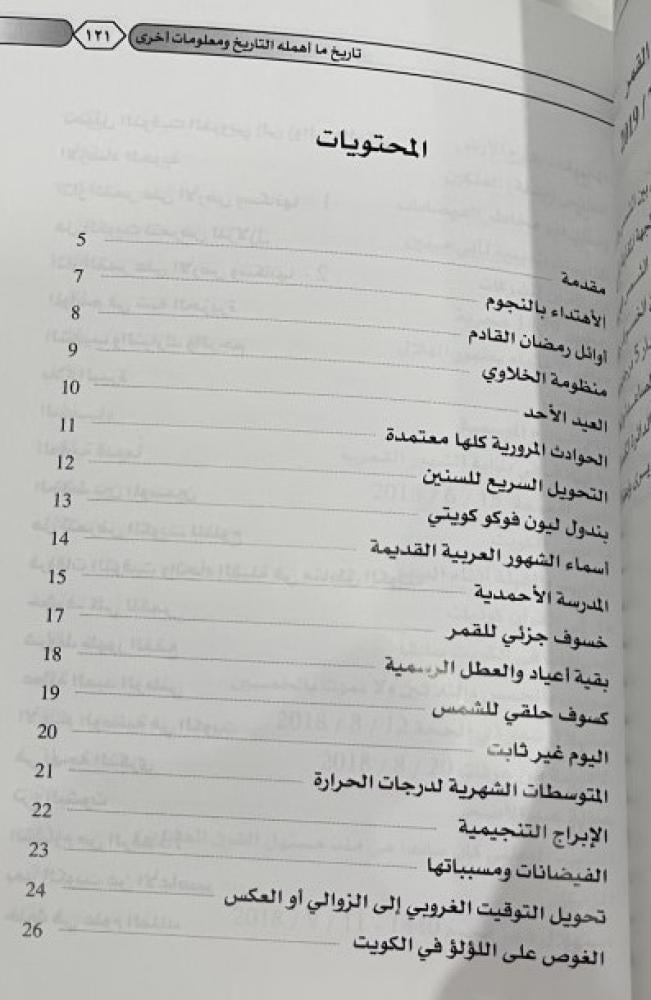 تاريخ ما أهمله التاريخ ومعلومات أخرى ١٢١
المحتويات
مقدمة 5
الأهتداء بالنجوم 7
أوائل رمضان القادم 8
منظومة الخلاوي 9
العيد الأحد 10
الحوادث المرورية كلها معتمدة 11
التحويل السريع للسنين 12
بندول ليون فوكو كويتي 13
أسماء الشهور العربية القديمة 14
المدرسة الأحمدية 15
خسوف جزئي للقمر 17
بقية أعياد والعطل الرسمية 18
كسوف حلقي للشمس 19
اليوم غير ثابت 20
المتوسطات الشهرية لدرجات الحرارة 21
الإبراج التنجيمية 22
الفيضانات ومسبباتها 23
تحويل التوقيت الغروبي إلى الزوالي أو العكس 24
الغوص على اللؤلؤ في الكويت 26
القمر
2019 /